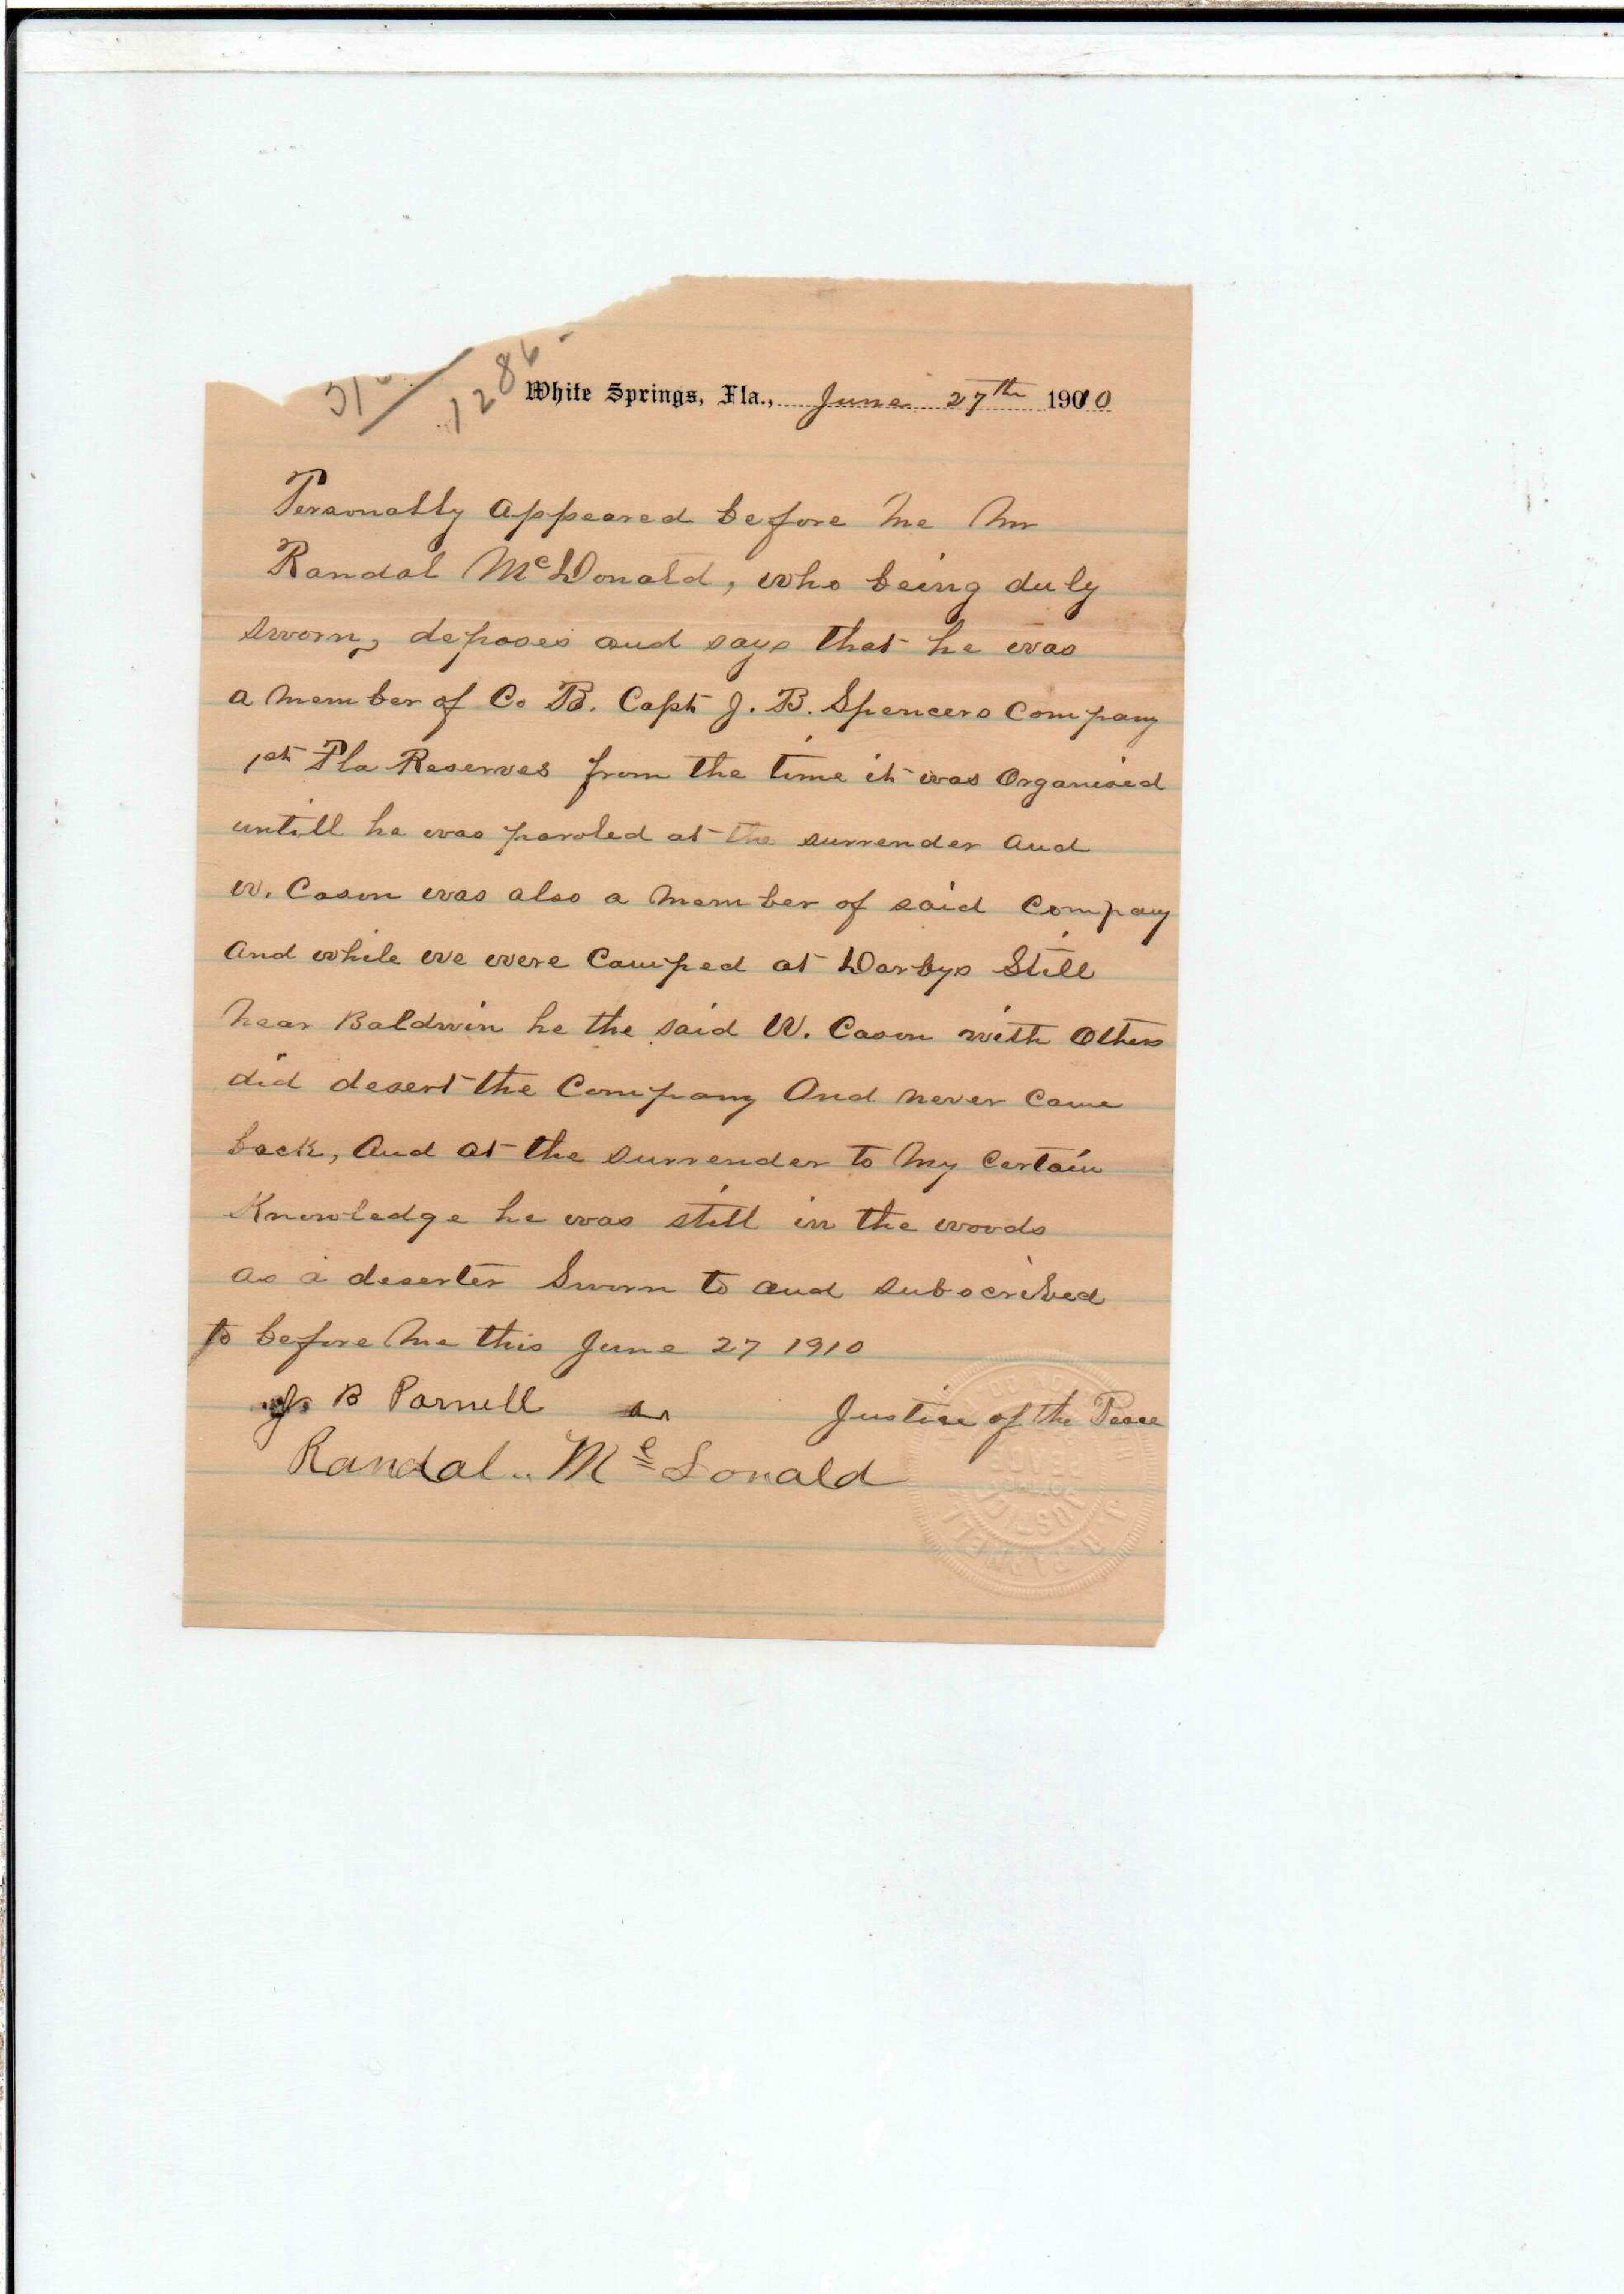 1286
White Springs, Fla., June 27th 1910
Personally appeared before me Mr
Randal McDonald, who being duly
sworn, deposes and says that he was
a member of Co B. Capt J. B. Spencers Company
1st Fla Reserves from the time it was Organised
untill he was paroled at the surrender and
W. Cason was also a member of said Company
And while we were Camped at Darbys Still
near Baldwin he the said W. Cason with Others
did desert the Company And never Came
back, And at the surrender to my Certain
Knowledge he was still in the woods
as a deserter Sworn to and subscribed
to before me this June 27 1910
J. B Parnell Justice of the Peace
Randal. Mc Donald